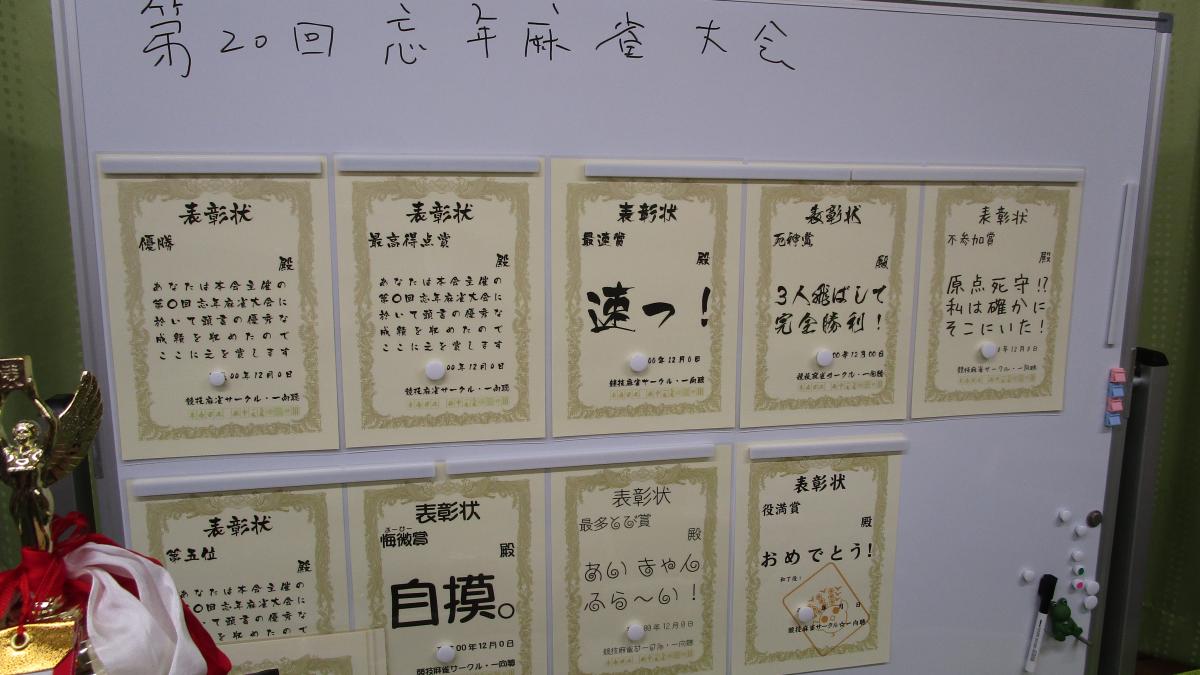 第20回 忘年麻雀大会
表彰状
優勝
殿
あなたは本会主催の
第〇回忘年麻雀大会に
於いて頭書の優秀な
成績を収めたので
ここに之を賞します
00年12月0日
競技麻雀サークル・一向聴
表彰状
最高得点賞
殿
あなたは本会主催の
第〇回忘年麻雀大会に
於いて頭書の優秀な
成績を収めたので
ここに之を賞します
00年12月0日
競技麻雀サークル・一向聴
表彰状
最速賞
殿
速っ!
00年12月0日
競技麻雀サークル・一向聴
表彰状
死神賞
殿
3人飛ばして
完全勝利!
00年12月00日
競技麻雀サークル・一向聴
表彰状
不参加賞
殿
原点死守!?
私は確かに
そこにいた!
年12月0日
競技麻雀サークル・一向聴
表彰状
第五位
殿
あなたは本会主催の
〇回忘年麻雀大会に
於いて頭書の優秀な
を収めたので
表彰状
ぼーひー
悔微賞
殿
自摸。
00年12月0日
競技麻雀サークル・一向聴
表彰状
最多とび賞
殿
あい きゃん
ふら〜い!
00年12月0日
競技麻雀サークル・一向聴
表彰状
役満賞
殿
おめでとう!
和了役:
月 日
競技麻雀サークル☆一向聴